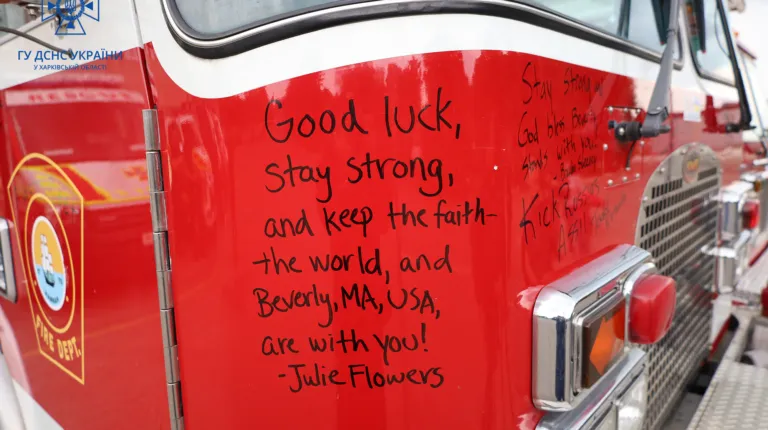 ГУ ДСНС УКРАЇНИ
У ХАРКІВСЬКІЙ ОБЛАСТІ
RESCUE
FIRE DEPT.
Good luck,
stay strong,
and keep the faith-
the world, and
Beverly, MA, USA,
are with you!
-Julie Flowers
Stay Strong
God bless
with you!
Kick
Ass!!